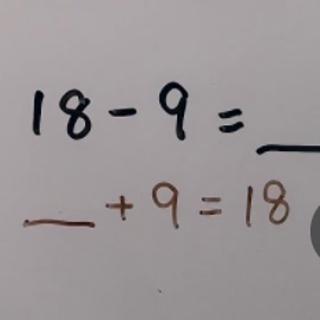 18 - 9 = __
__ + 9 = 18